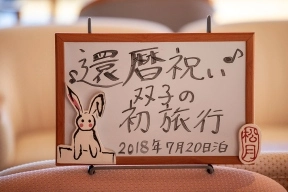 ♪還暦祝い♪
双子の
初旅行
2018年7月20日泊
松月